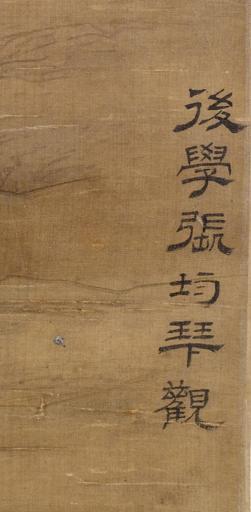 後學張均琴觀